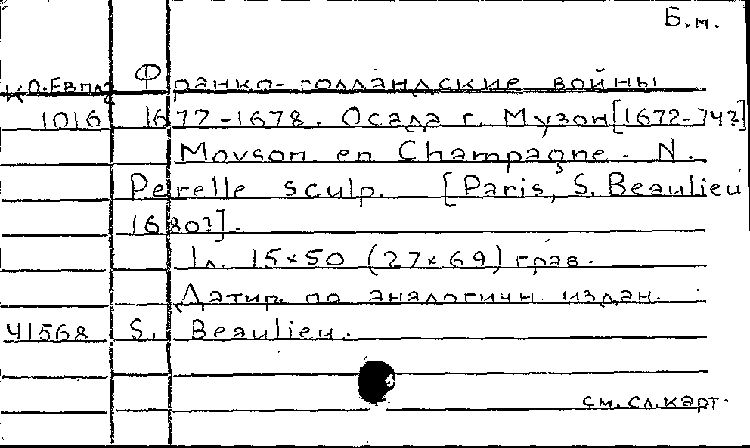 Б.м.
К О.Евпл Франко-голландские войны
1016 1677-1678. Осада г. Музон [1672-74?]
Mouson en Champagne. N.
Perelle sculp. [Paris, S. Beaulieu
1680?].
1л. 15×50 (27×69) грав.
Датир. по аналогичн. издан.
41568 S. Beaulieu.
см. сл. карт.